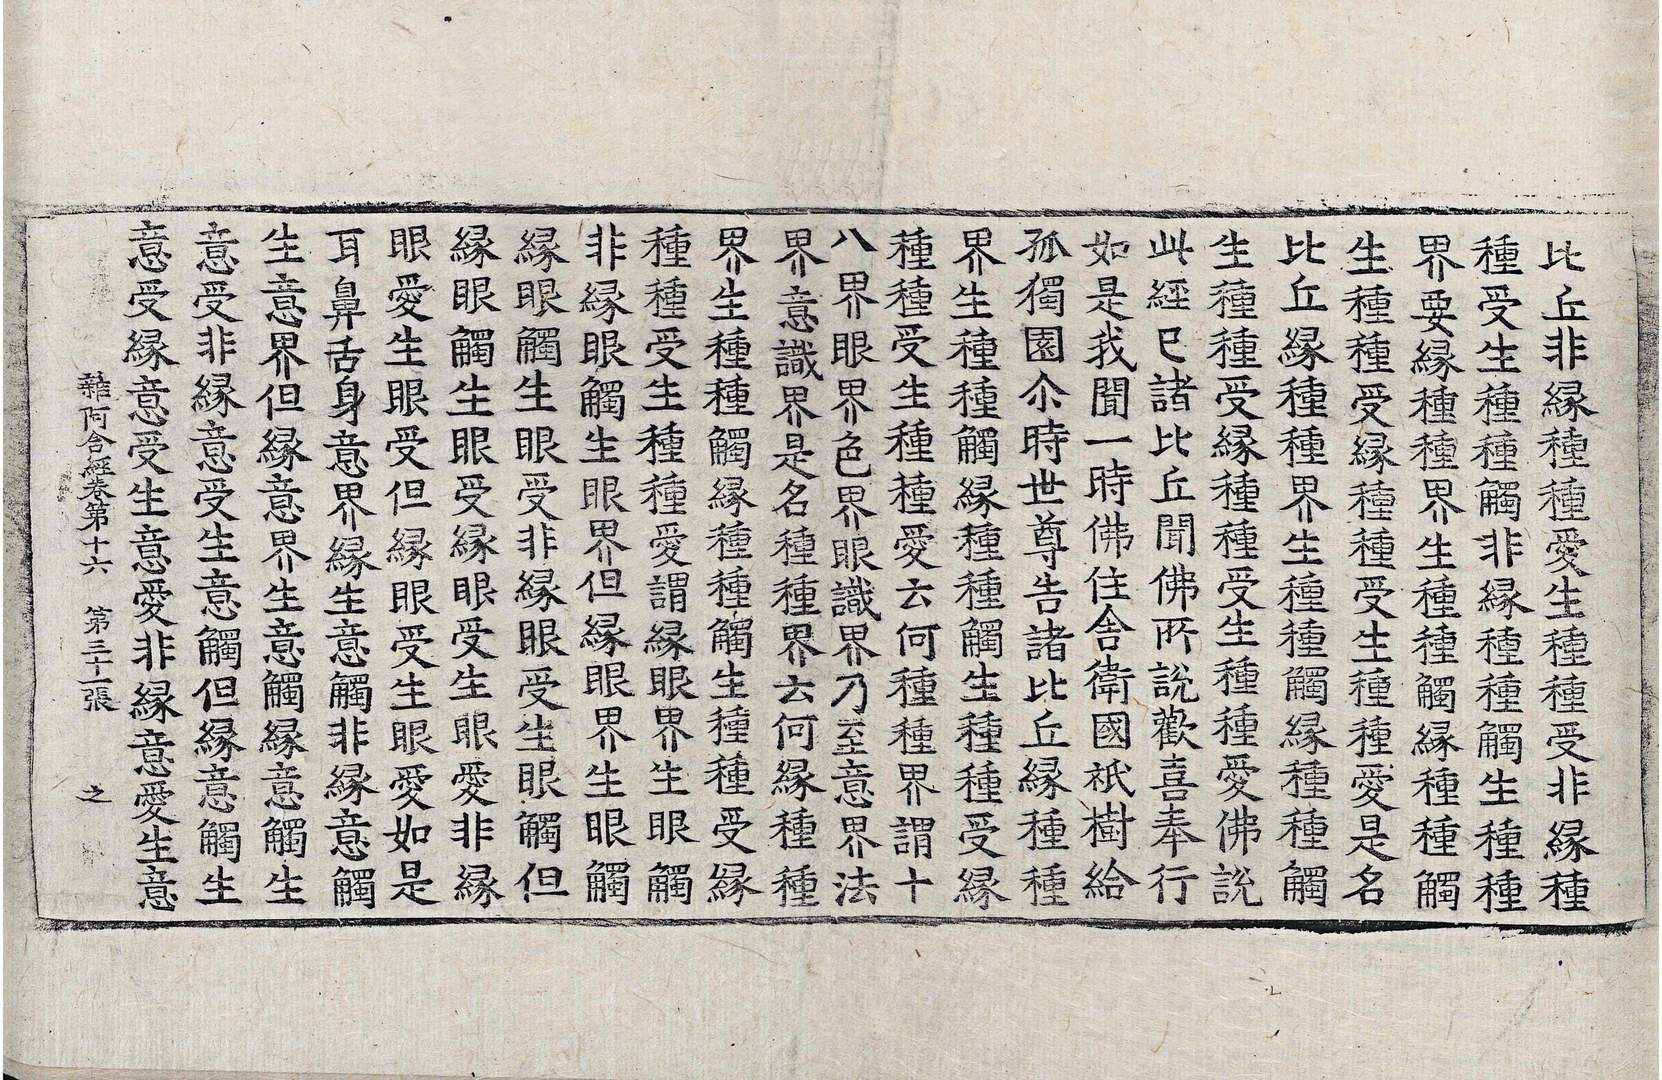 比丘非縁種種愛生種種受非縁種
種受生種種觸非縁種種觸生種種
界要縁種種界生種種觸縁種種觸
生種種受縁種種受生種種愛是名
比丘縁種種界生種種觸縁種種觸
生種種受縁種種受生種種愛佛說
此經已諸比丘聞佛所說歡喜奉行
如是我聞一時佛住舍衛國祇樹給
孤獨園尒時世尊告諸比丘縁種種
界生種種觸縁種種觸生種種受縁
種種受生種種愛云何種種界謂十
八界眼界色界眼識界乃至意界法
界意識界是名種種界云何縁種種
界生種種觸縁種種觸生種種受縁
種種受生種種愛謂縁眼界生眼觸
非縁眼觸生眼界但縁眼界生眼觸
縁眼觸生眼受非縁眼受生眼觸但
縁眼觸生眼受縁眼受生眼愛非縁
眼愛生眼受但縁眼受生眼愛如是
耳鼻舌身意界縁生意觸非縁意觸
生意界但縁意界生意觸縁意觸生
意受非縁意受生意觸但縁意觸生
意受縁意受生意愛非縁意愛生意
雜阿含經卷第十六 第三十一張 之